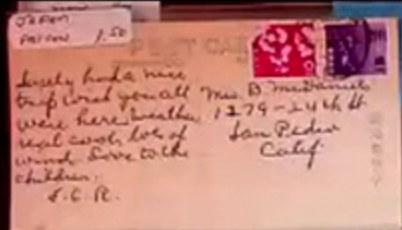 JAPAN
1.50
POST CARD
Surely had a nice
trip wish you all
were here. Weather
real cool, lots of
wind. Love to the
children.
Mrs. B. McDaniels
1279-24th St
San Pedro
Calif.